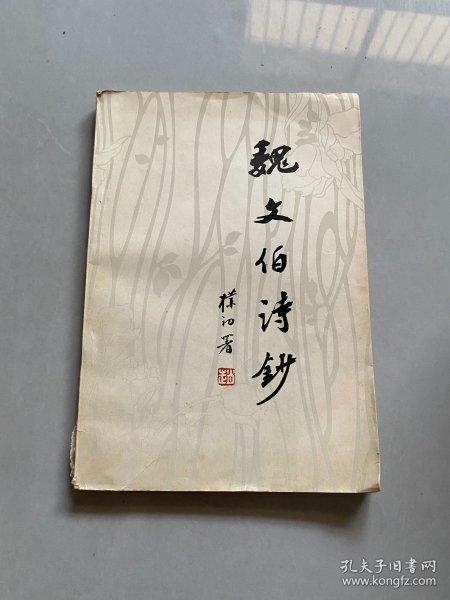 魏文伯诗钞
樸初署
孔夫子旧书网
www.kongfz.com